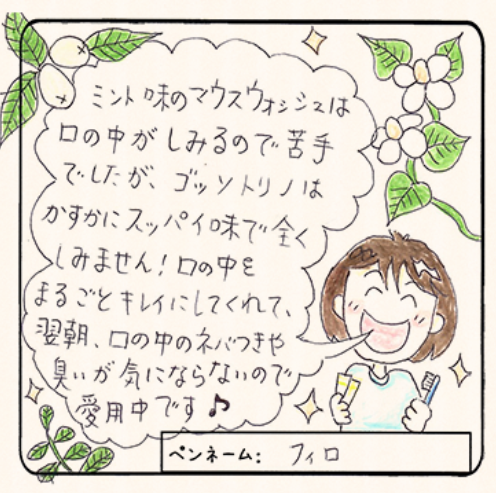 ミント味のマウスウォッシュは
口の中がしみるので苦手
でしたが、ゴッソトリノは
かすかにスッパイ味で全く
しみません！口の中を
まるごとキレイにしてくれて、
翌朝、口の中のネバつきや
臭いが気にならないので
愛用中です♪
ペンネーム: フィロ